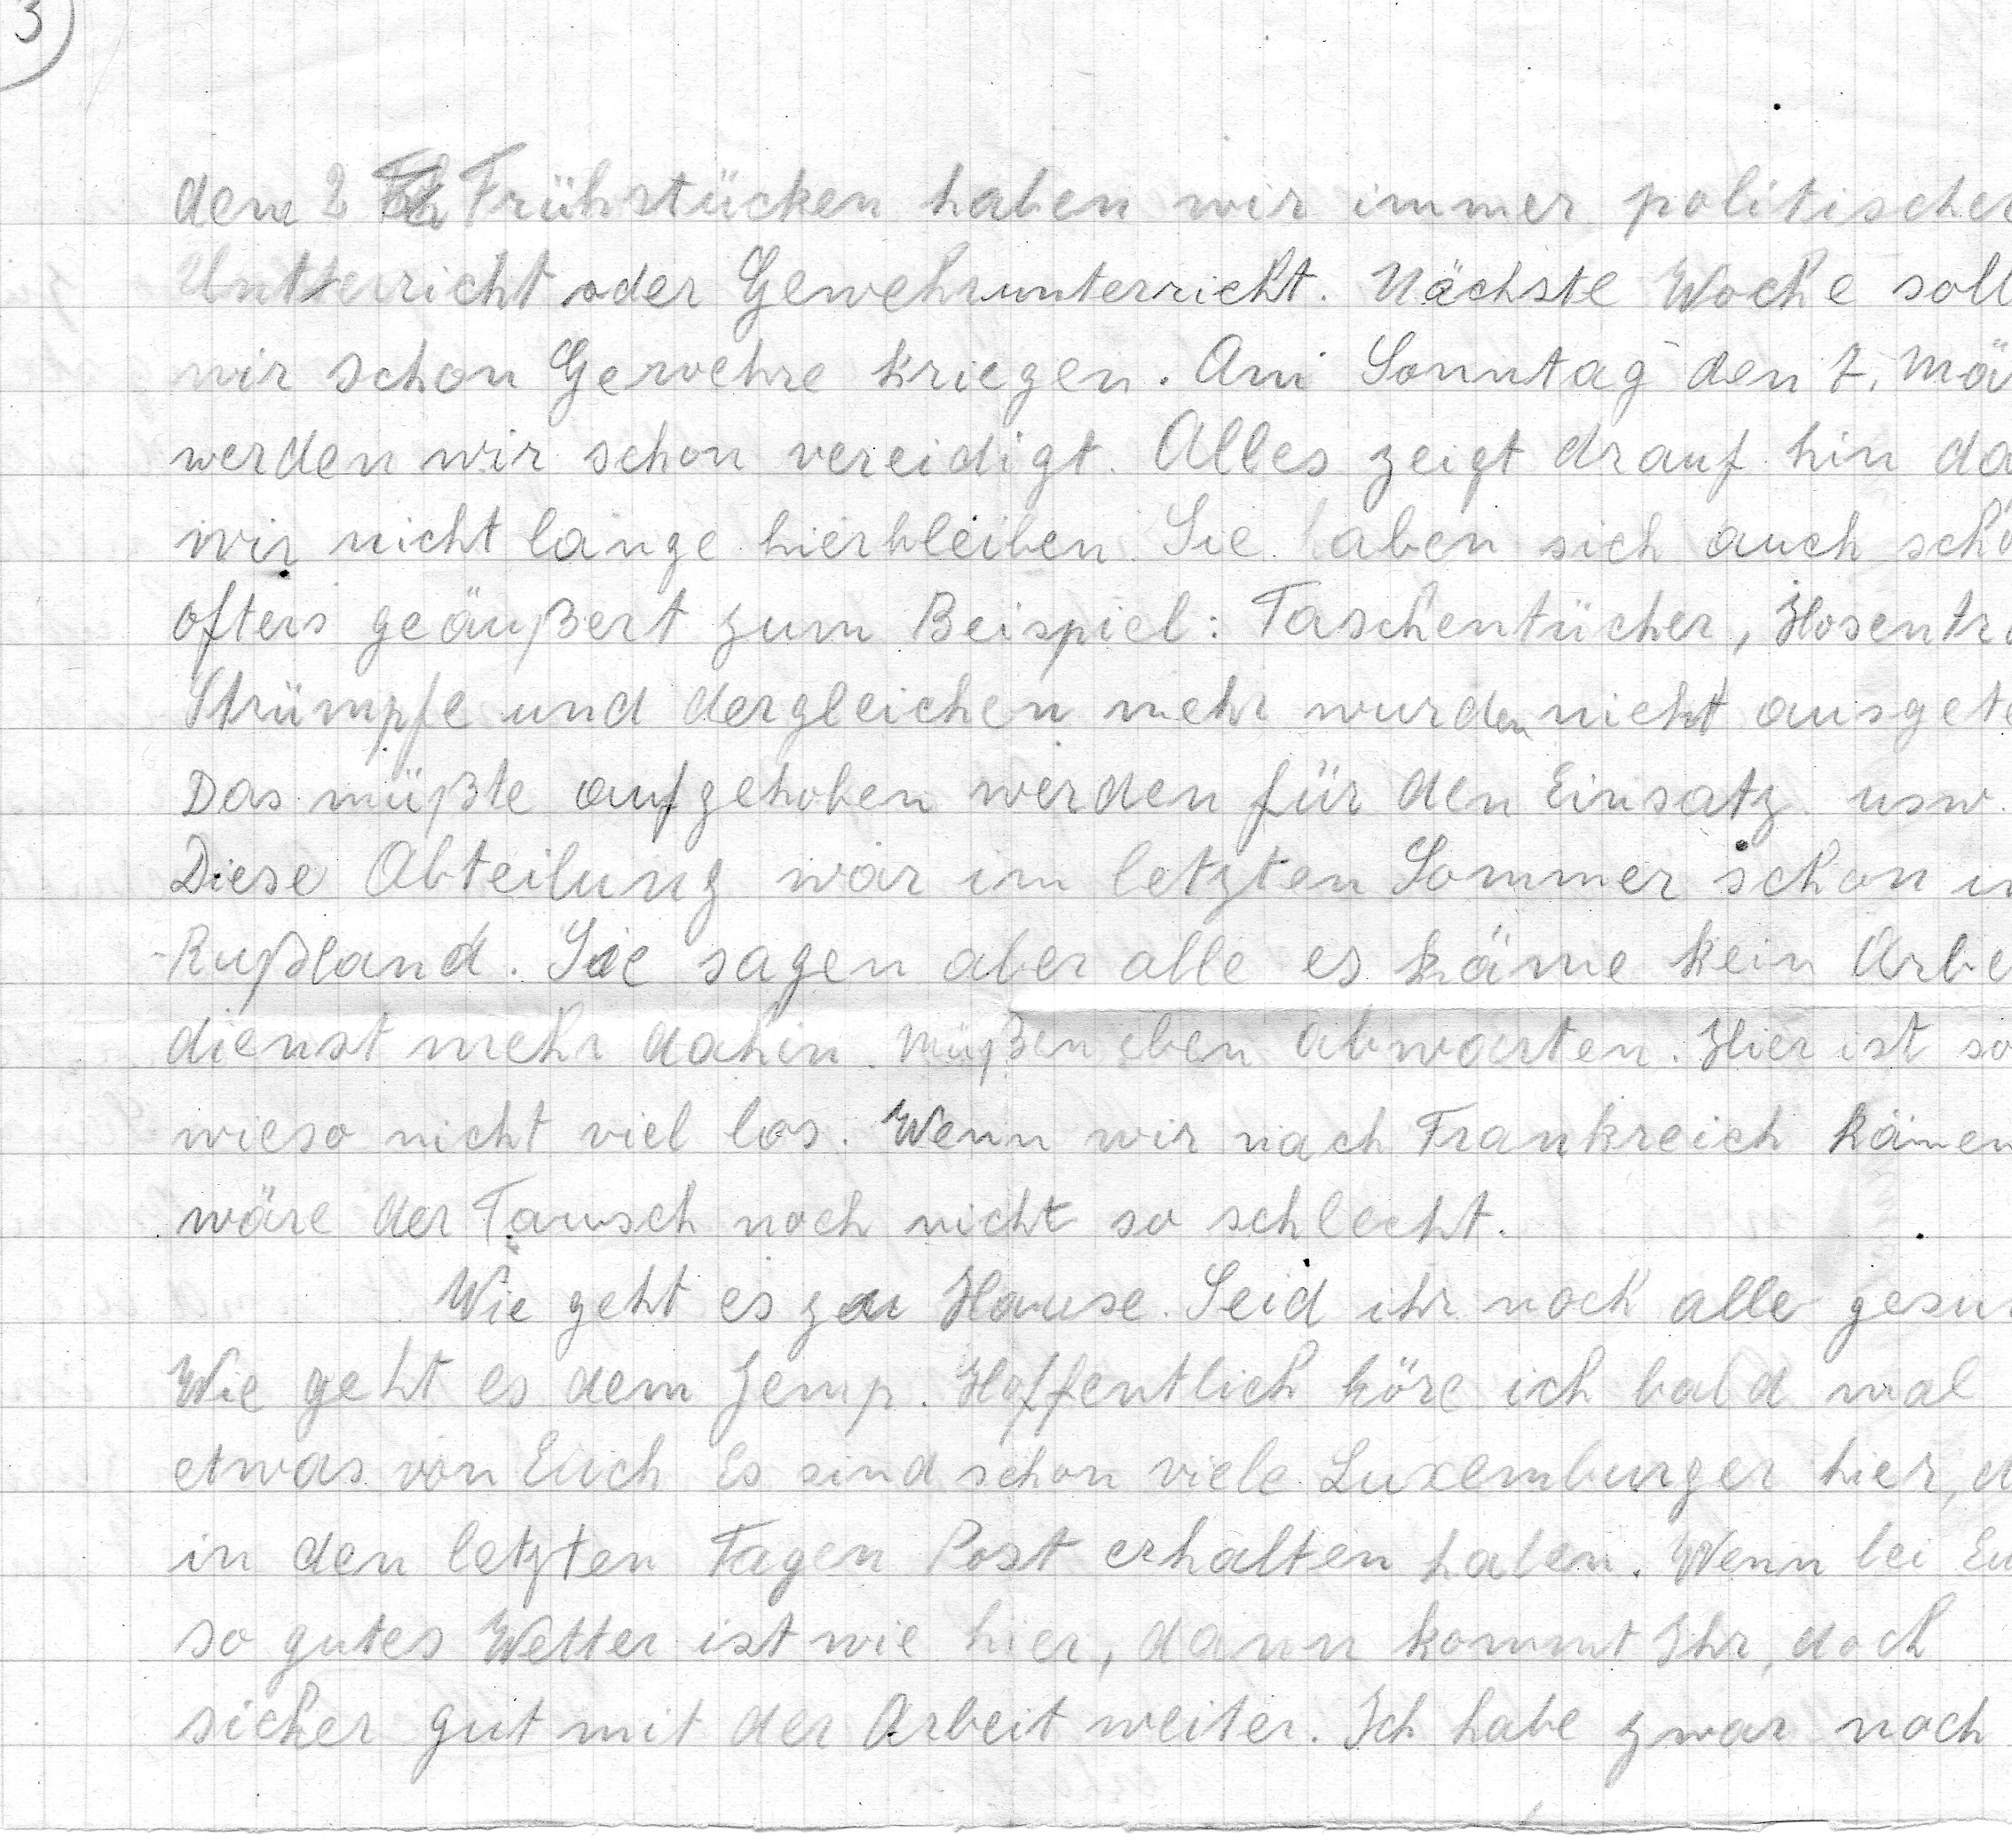 3)
dem 2 Frühstücken haben wir immer politischen
Unterricht oder Gewehrunterricht. Nächste Woche soll
wir schon Gewehre kriegen. Am Sonntag den 7. Mä
werden wir schon vereidigt. Alles zeigt drauf hin da
wir nicht lange hierbleiben Sie haben sich auch scho
öfters geäußert zum Beispiel: Taschentücher, Hosentrö
Strümpfe und dergleichen mehr wurden nicht ausgete
Das müßte aufgehoben werden für den Einsatz usw.
Diese Abteilung war im letzten Sommer schon in
Rußland. Sie sagen aber alle es käme kein Arbe
dienst mehr dahin. müßen eben abwarten. Hier ist so
wieso nicht viel los. Wenn wir nach Frankreich kämen
wäre der Tausch noch nicht so schlecht.
Wie geht es zu Hause. Seid ihr noch alle gesun
Wie geht es dem Jemp. Hoffentlich höre ich bald mal
etwas von Euch Es sind schon viele Luxemburger hier, d
in den letzten Tagen Post erhalten haben. Wenn bei Eu
so gutes Wetter ist wie hier, dann kommt Ihr, doch
sicher gut mit der Arbeit weiter. Ich habe zwar noch